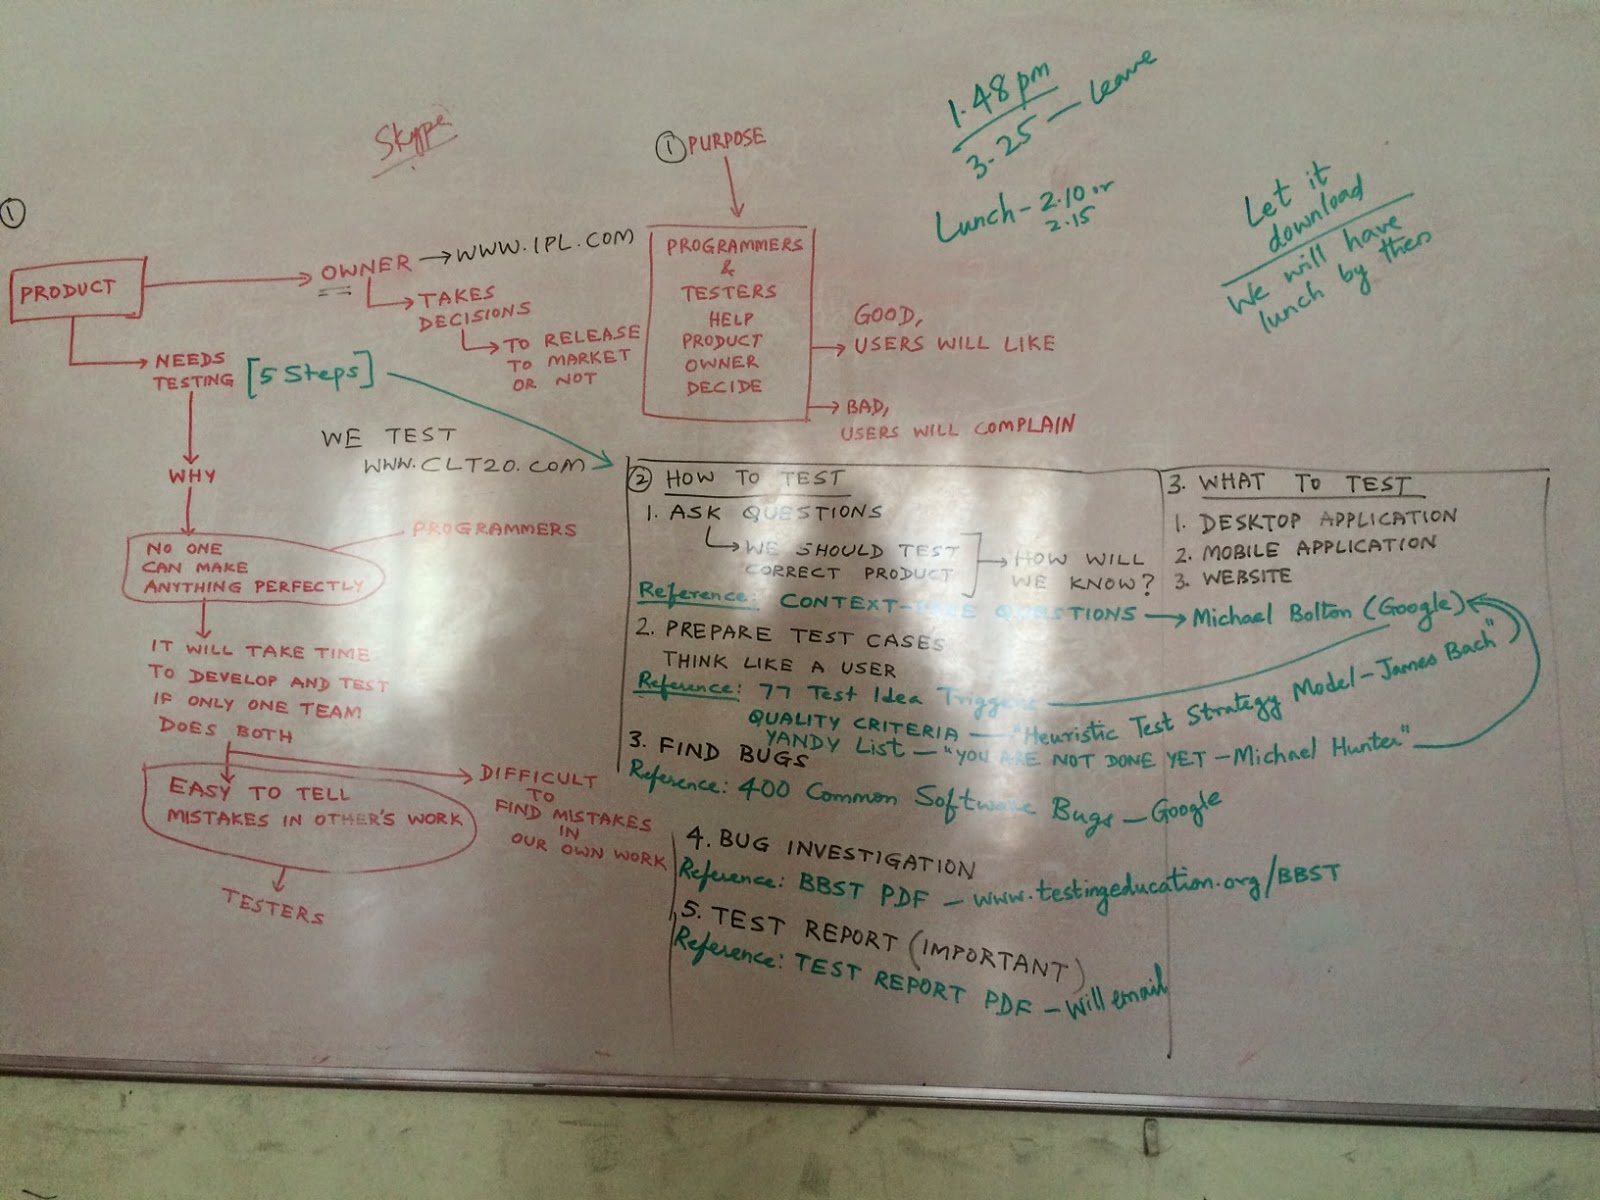 Skype
1.48pm
3.25 — leave
Lunch - 2.10 or
2.15
Let it
download
We will have
lunch by then
①
PRODUCT
OWNER → WWW.IPL.COM
TAKES
DECISIONS
TO RELEASE
TO MARKET
OR NOT
NEEDS
TESTING [5 Steps]
WE TEST
WWW.CLT20.COM
WHY
PROGRAMMERS
NO ONE
CAN MAKE
ANYTHING PERFECTLY
IT WILL TAKE TIME
TO DEVELOP AND TEST
IF ONLY ONE TEAM
DOES BOTH
EASY TO TELL
MISTAKES IN OTHER'S WORK
DIFFICULT
TO
FIND MISTAKES
IN
OUR OWN WORK
TESTERS
① PURPOSE
PROGRAMMERS
&
TESTERS
HELP
PRODUCT
OWNER
DECIDE
GOOD,
USERS WILL LIKE
BAD,
USERS WILL COMPLAIN
② HOW TO TEST
1. ASK QUESTIONS
WE SHOULD TEST
CORRECT PRODUCT
HOW WILL
WE KNOW?
Reference: CONTEXT- QUESTIONS → Michael Bolton (Google)
2. PREPARE TEST CASES
THINK LIKE A USER
Reference: 77 Test Idea Triggers
QUALITY CRITERIA — "Heuristic Test Strategy Model - James Bach"
YANDY List — "YOU ARE NOT DONE YET - Michael Hunter"
3. FIND BUGS
Reference: 400 Common Software Bugs — Google
4. BUG INVESTIGATION
Reference: BBST PDF — www.testingeducation.org/BBST
5. TEST REPORT (IMPORTANT)
Reference: TEST REPORT PDF — Will email
3. WHAT TO TEST
1. DESKTOP APPLICATION
2. MOBILE APPLICATION
3. WEBSITE